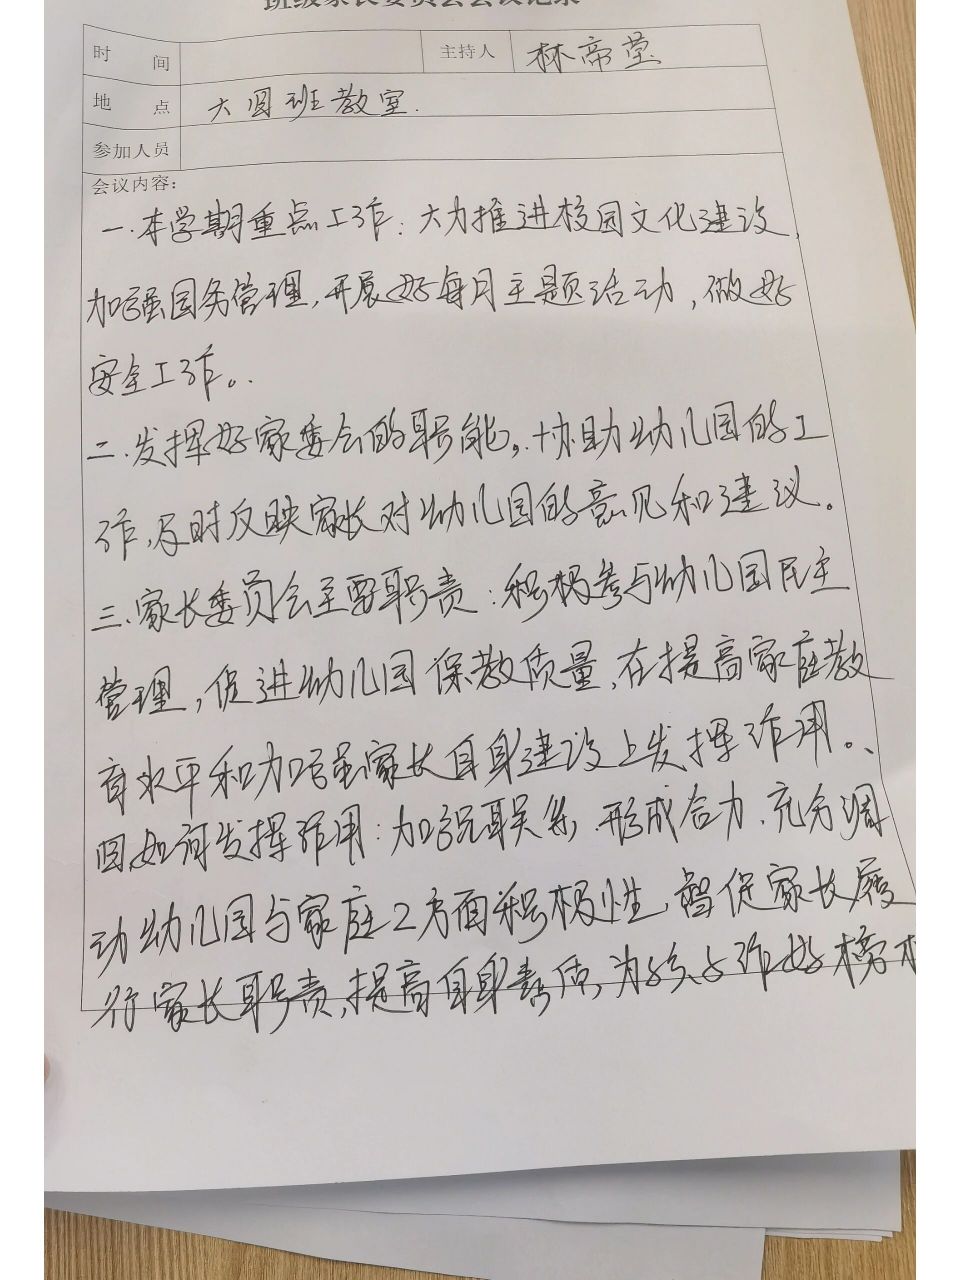 班级家长委员会会议记录
时间 主持人 林帝莹
地点 大四班教室.
参加人员
会议内容:
一.本学期重点工作:大力推进校园文化建设,
加强园务管理,开展好每月主题活动,做好
安全工作。.
二.发挥好家委会的职能。.协助幼儿园的工
作,及时反映家长对幼儿园的意见和建议。
三.家长委员会主要职责:积极参与幼儿园民主
管理,促进幼儿园保教质量,在提高家庭教
育水平和加强家长自身建设上发挥作用。.
四.如何发挥作用:加强联系,形成合力.充分调
动幼儿园与家庭2方面积极性,督促家长履
行家长职责,提高自身素质,为孩子作好榜